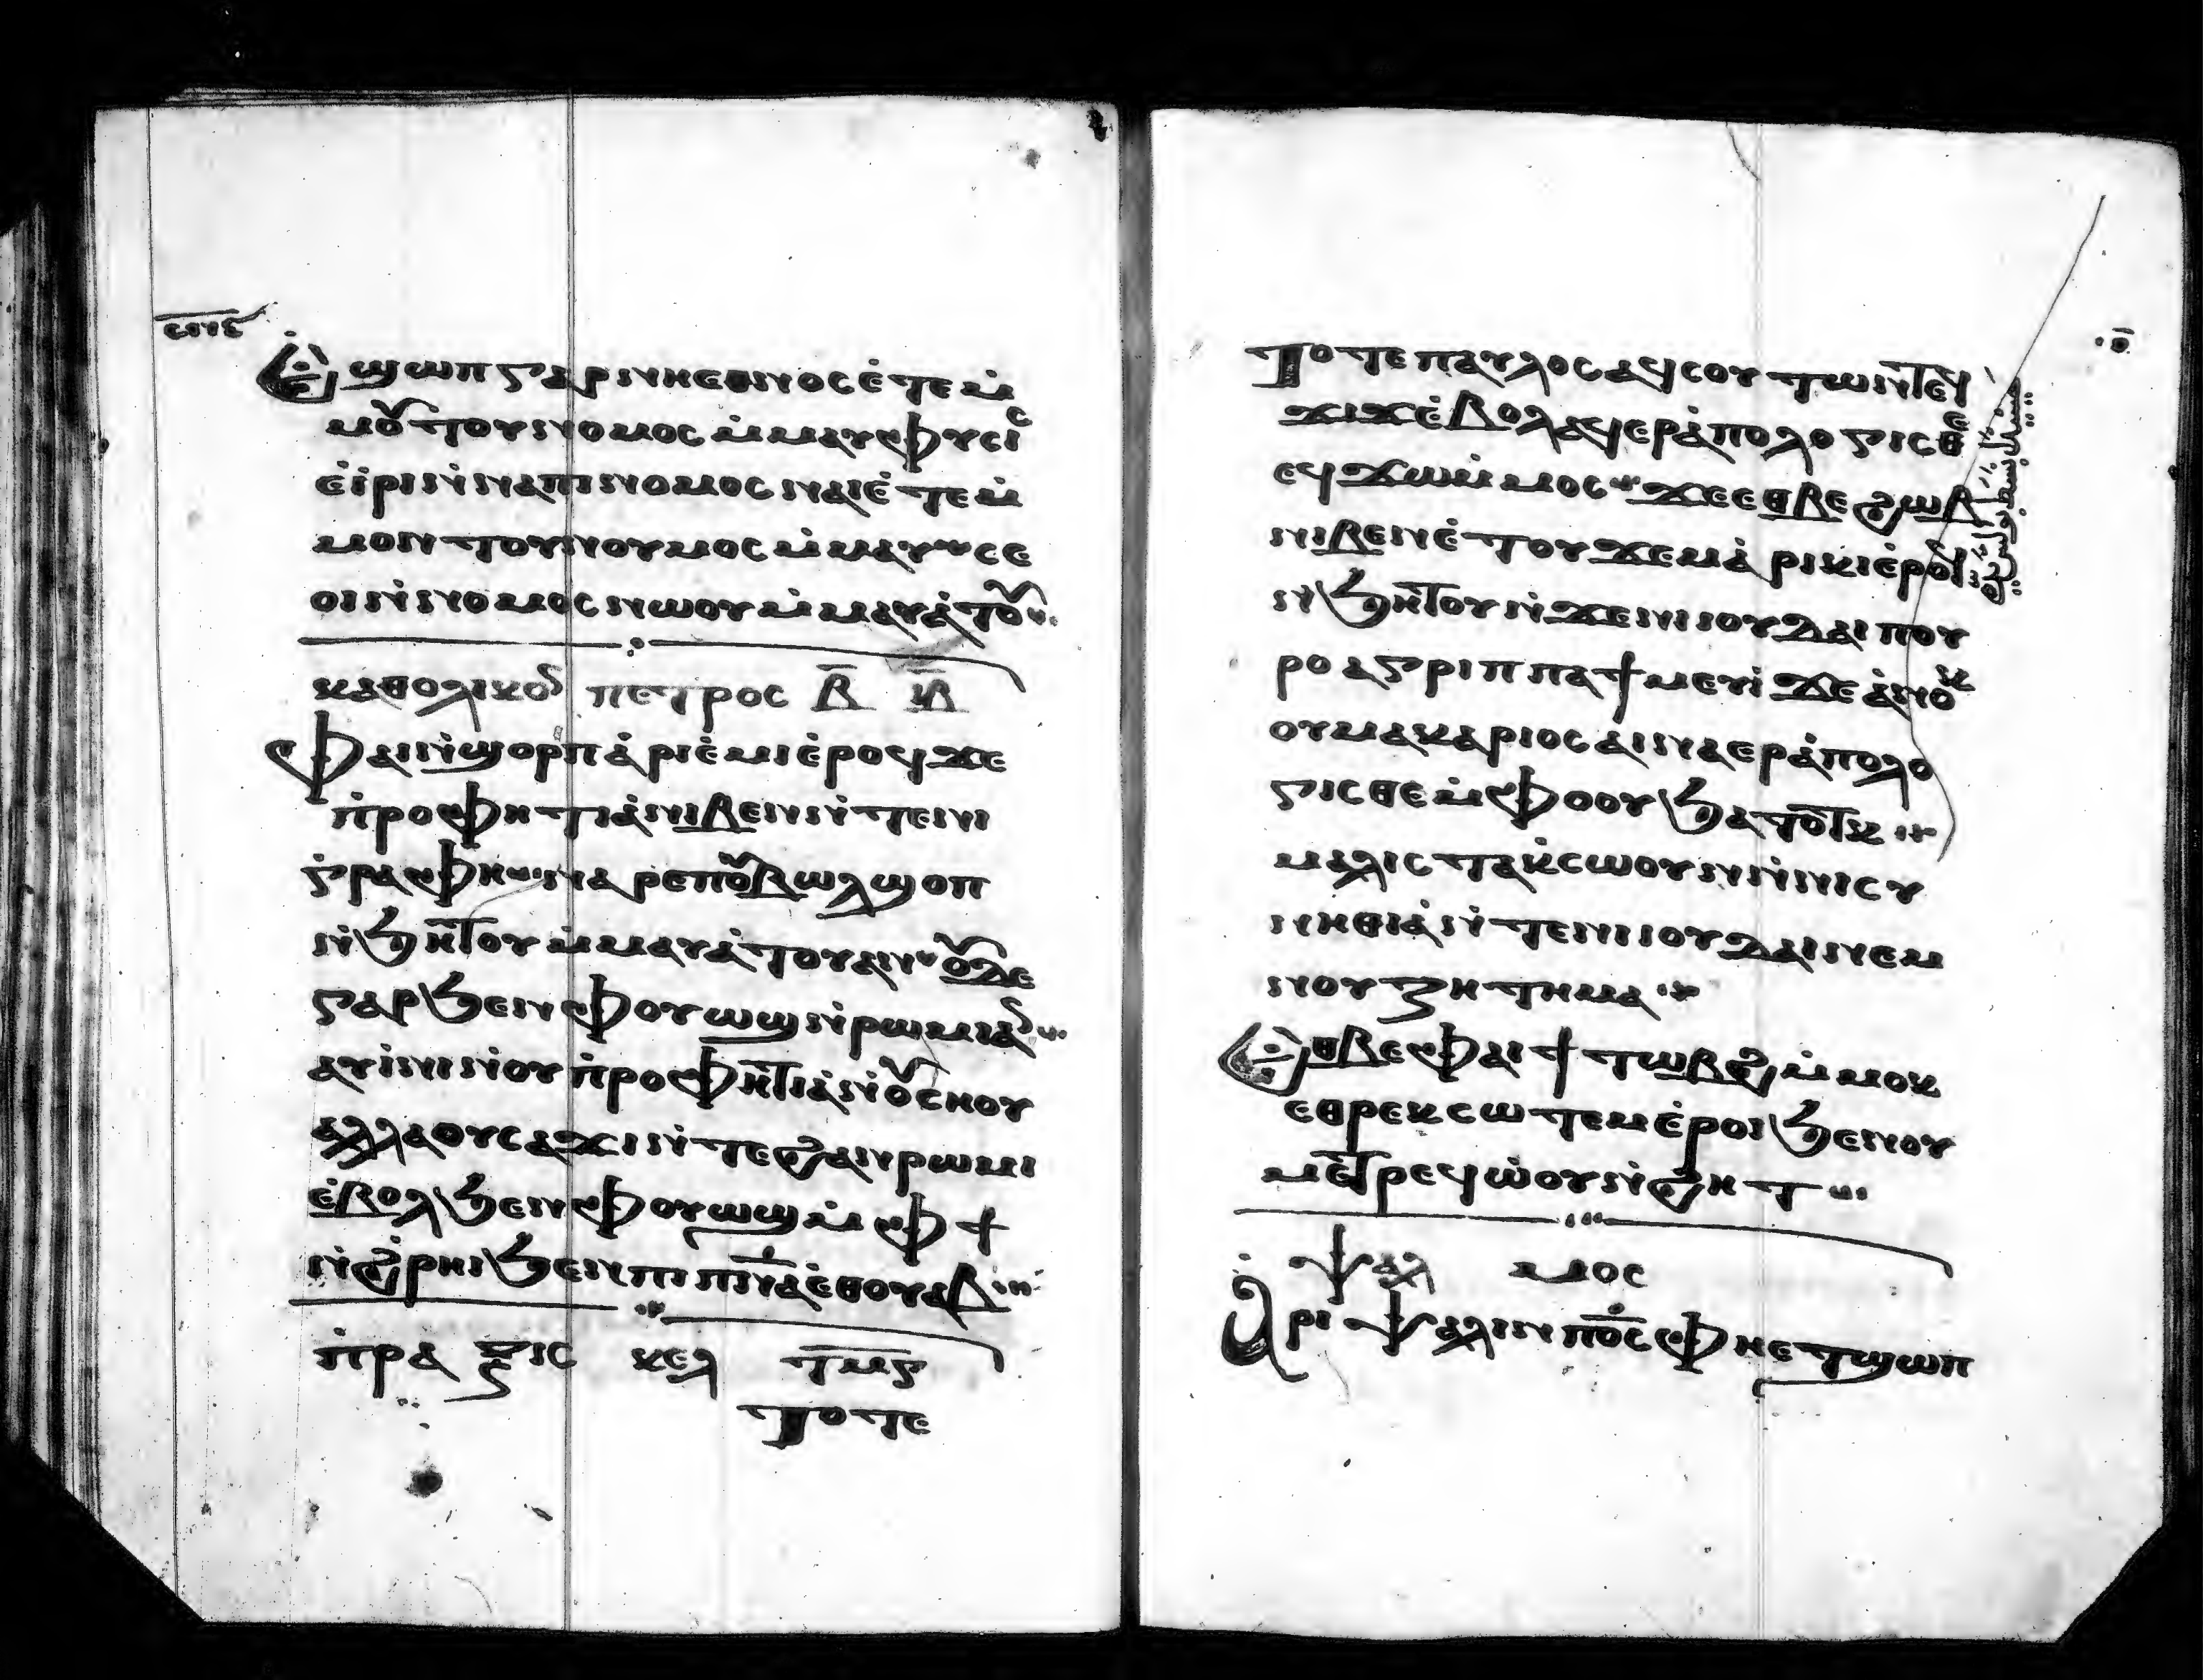 ⲉϣⲱⲡ ⲅⲁⲣ ⲛⲓⲉⲑⲛⲟⲥ ⲉ̀ⲧⲉ ⲙ̀
ⲙⲟⲛ ⲧⲟⲩⲛⲟⲙⲟⲥ ⲙ̀ⲙⲁⲩ ⲫⲩⲥⲓⲥ
ⲉ̀ⲓ̀ⲣⲓ ⲛ̀ⲛⲁ ⲡⲓⲛⲟⲙⲟⲥ ⲛⲁⲓ ⲉ̀ⲧⲉ ⲙ̀
ⲙⲟⲛ ⲧⲟⲩⲛⲟⲩⲙⲟⲥ ⲙ̀ⲙⲁⲩ ⲥⲉ
ⲟⲓ ⲛ̀ⲛⲟⲙⲟⲥ ⲛⲱⲟⲩ ⲙ̀ⲙⲁⲩⲁ̀ⲧⲟⲩ
ⲕⲁⲑⲟⲗⲓⲕⲟⲛ ⲡⲉⲧⲣⲟⲥ ⲃ̅ ⲕ̅ⲃ̅
ⲫⲁⲓ ⲛ̀ϣⲟⲣⲡ ⲁ̀ⲣⲓⲉ̀ⲙⲓ ⲉ̀ⲣⲟϥ ϫⲉ
ⲡ̀ⲣⲟⲫⲏⲧⲓⲁ̀ ⲛⲓⲃⲉⲛ ⲛ̀ⲧⲉ ⲛⲓ
ⲅ̀ⲣⲁⲫⲏ ⲛⲁⲣⲉ ⲡⲟⲩⲃⲱⲗ ϣⲟⲡ
ⲛ̀ϧⲏⲧⲟⲩ ⲙ̀ⲙⲁⲩⲁ̀ⲧⲟⲩ ⲁⲛ ⲟⲩⲇⲉ
ⲅⲁⲣ ϧⲉⲛ ⲫⲟⲩⲱϣ ⲛ̀ⲣⲱⲙⲓ ⲁⲛ
ⲁⲩⲓ̀ⲛⲓ ⲛ̀ⲟⲩⲡ̀ⲣⲟⲫⲏⲧⲓⲁ̀ ⲛ̀ⲟⲩⲥⲏⲟⲩ
ⲁⲗⲗⲁ ⲟⲩⲥⲁϫⲓ ⲛ̀ⲧⲉ ϩⲁⲛⲣⲱⲙⲓ
ⲉ̀ⲃⲟⲗ ϧⲉⲛ ⲫⲟⲩⲱϣ ⲙ̀ⲫϯ
ⲛ̀ϩ̀ⲣⲏⲓ ϧⲉⲛ ⲡⲓⲡⲛ̅ⲁ̅ ⲉ̀ⲑⲟⲩⲁⲃ
ⲡ̀ⲣⲁⲝⲓⲥ ⲕⲉⲗ ⲧ̅ⲙ̅ⲋ̅
ⲧⲟⲧⲉ
ⲧⲟⲧⲉ ⲡⲁⲩⲗⲟⲥ ⲁϥⲥⲟⲩⲧⲱⲛ ⲧⲉϥ
ϫⲓϫ ⲉ̀ⲃⲟⲗ ⲁϥⲉⲣⲁ̀ⲡⲟⲗⲟⲅⲓⲥⲑⲉ
ⲉϥϫⲱ ⲙ̀ⲙⲟⲥ ϫⲉ ⲉⲑⲃⲉ ϩⲱⲃ
ⲛⲓⲃⲉⲛ ⲉ̀ⲧⲟⲩϫⲉⲙ ⲁ̀ⲣⲓⲕⲓ ⲉ̀ⲣⲟⲓ
ⲛ̀ϧⲏⲧⲟⲩ ⲛ̀ϫⲉ ⲛⲓⲓⲟⲩⲇⲁⲓ ⲡⲟⲩ
ⲣⲟ ⲁⲅⲣⲓⲡⲡⲁ ϯⲙⲉⲩⲓ̀ ϫⲉ ⲁ̀ⲛⲟⲕ
ⲟⲩⲙⲁⲕⲁⲣⲓⲟⲥ ⲁⲓⲛⲁⲉⲣⲁ̀ⲡⲟⲗⲟ
ⲅⲓⲥⲑⲉ ⲙ̀ⲫⲟⲟⲩ ϧⲁⲧⲟⲧⲕ
ⲙⲁⲗⲓⲥⲧⲁ ⲕ̀ⲥⲱⲟⲩⲛ ⲛ̀ⲛⲓⲥⲩ
ⲛⲏⲑⲓⲁ̀ ⲛ̀ⲧⲉ ⲛⲓⲓⲟⲩⲇⲁⲓ ⲛⲉⲙ
ⲛⲟⲩⲍⲏⲧⲏⲙⲁ
ⲉⲑⲃⲉ ⲫⲁⲓ ϯⲧⲱⲃϩ ⲙ̀ⲙⲟⲕ
ⲉⲑⲣⲉⲕⲥⲱⲧⲉⲙ ⲉ̀ⲣⲟⲓ ϧⲉⲛ ⲟⲩ
ⲙⲉⲧⲣⲉϥⲱ̀ⲟⲩⲛ̀ϩⲏⲧ
ⲯⲁⲗⲙⲟⲥ
ⲁⲣⲓⲯⲁⲗⲓⲛ ⲡⲟ̅ⲥ̅ ⲫⲏⲉⲧϣⲱⲡ